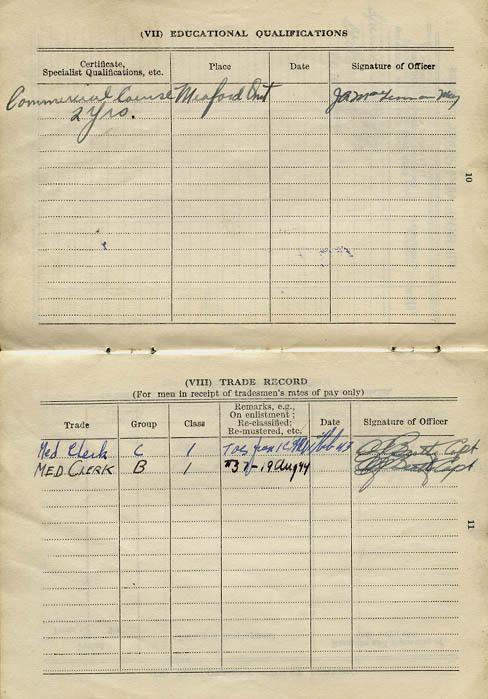 (VII) EDUCATIONAL QUALIFICATIONS
Certificate, Specialist Qualifications, etc. Place Date Signature of Officer
Commercial Course Meaford Ont
2 Yrs.
10
(VIII) TRADE RECORD
(For men in receipt of tradesmen's rates of pay only)
Trade Group Class Remarks, e.g., On enlistment; Re-classified; Re-mustered, etc. Date Signature of Officer
Med Clerk C 1 Capt
MED. CLERK B 1 19 Aug 44 Capt
11